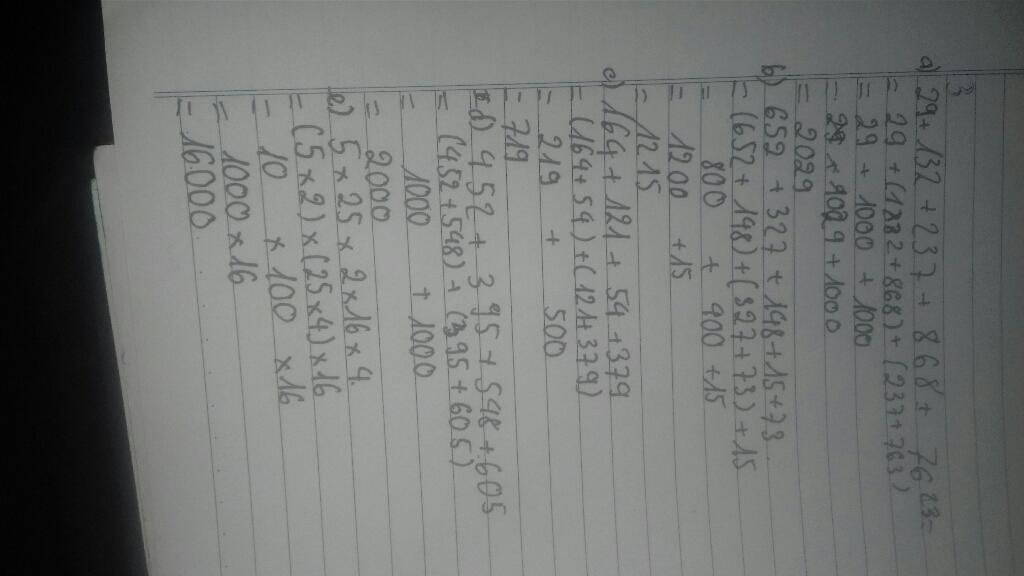 3
a) 29 + 132 + 237 + 868 + 763 =
= 29 + (132 + 868) + (237 + 763)
= 29 + 1000 + 1000
= 1029 + 1000
= 2029
b) 652 + 327 + 148 + 15 + 73
= (652 + 148) + (327 + 73) + 15
= 800 + 400 + 15
= 1200 + 15
= 1215
c) 164 + 121 + 54 + 379
= (164 + 54) + (121 + 379)
= 219 + 500
= 719
d) 452 + 395 + 548 + 605
= (452 + 548) + (395 + 605)
= 1000 + 1000
= 2000
e) 5 × 25 × 2 × 16 × 4
= (5 × 2) × (25 × 4) × 16
= 10 × 100 × 16
= 1000 × 16
= 16000